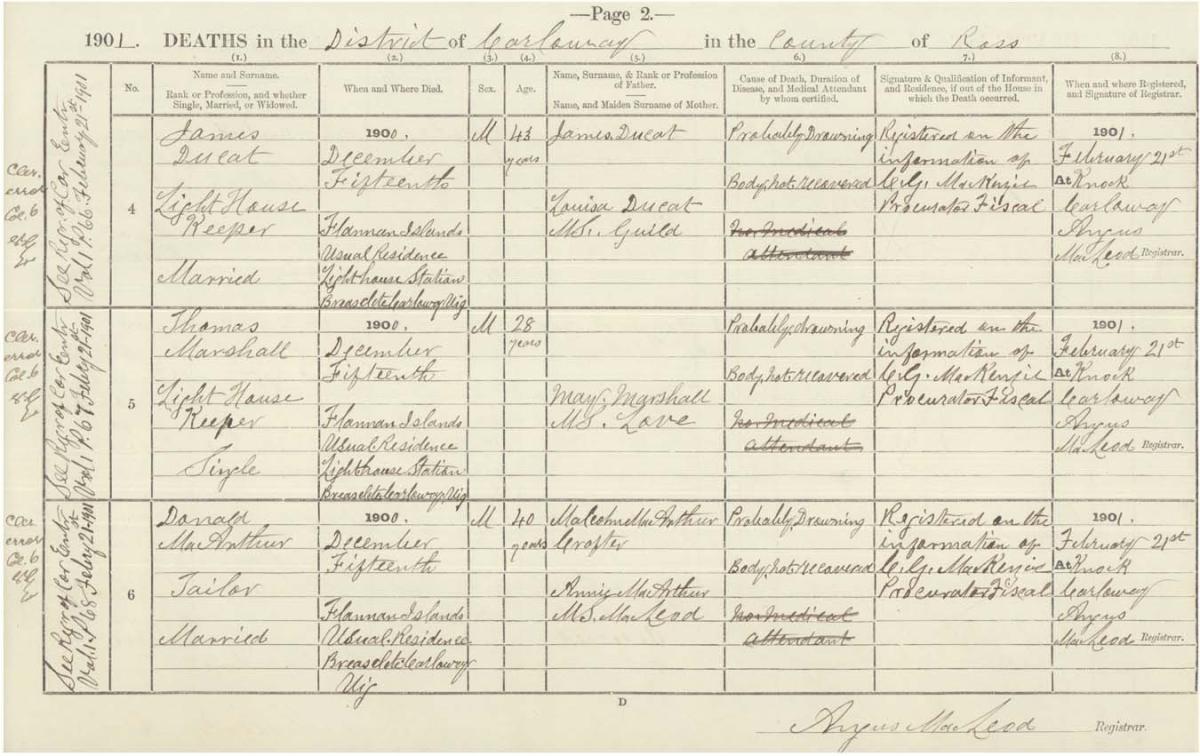 —Page 2.—
1901. DEATHS in the District of Carloway in the County of Ross
(1.) (2.) (3.) (4.) (5.) (6.) (7.) (8.)
No.
Name and Surname.
Rank or Profession, and whether
Single, Married, or Widowed.
When and Where Died.
Sex.
Age.
Name, Surname, & Rank or Profession
of Father.
Name, and Maiden Surname of Mother.
Cause of Death, Duration of
Disease, and Medical Attendant
by whom certified.
Signature & Qualification of Informant,
and Residence, if out of the House in
which the Death occurred.
When and where Registered,
and Signature of Registrar.
Cler.
error
Col. 6
See Regr. of Cor. Entr.
Vol. 1 P. 66 Febuery 21st 1901
4
James
Ducat
Light House
Keeper
Married
1900.
December
Fifteenth
Flannan Islands
Usual Residence
Light house Station
Breasclete Carloway Uig
M
43
years
James Ducat
Louisa Ducat
M.S. Guild
Probably Drowning
Body not recovered
No Medical
Attendant
Registered on the
information of
C. G. MacKenzie
Procurator Fiscal
1901.
February 21st
At Knock
Carloway
Angus
MacLeod Registrar.
Cler.
error
Col. 6
See Regr. of Cor. Entr.
Vol. 1 P. 67 Febuery 21st 1901
5
Thomas
Marshall
Light House
Keeper
Single
1900.
December
Fifteenth
Flannan Islands
Usual Residence
Lighthouse Station
Breasclete Carloway Uig
M
28
years
Mary Marshall
M.S. Love
Probably drowning
Body not recovered
No Medical
Attendant
Registered on the
information of
C. G. MacKenzie
Procurator Fiscal
1901.
February 21st
At Knock
Carloway
Angus
MacLeod Registrar.
Cler.
error
Col. 6
See Regr. of Cor. Entr.
Vol. 1. P. 68 Febuery 21st 1901
6
Donald
MacArthur
Tailor
Married
1900.
December
Fifteenth
Flannan Islands
Usual Residence
Breasclete Carloway
Uig
M
40
years
Malcolm MacArthur
Crofter
Annie MacArthur
M.S. MacLeod
Probably Drowning
Body not recovered
No Medical
Attendant
Registered on the
information of
C. G. MacKenzie
Procurator Fiscal
1901.
February 21st
At Knock
Carloway
Angus
MacLeod Registrar.
D
Angus MacLeod Registrar.